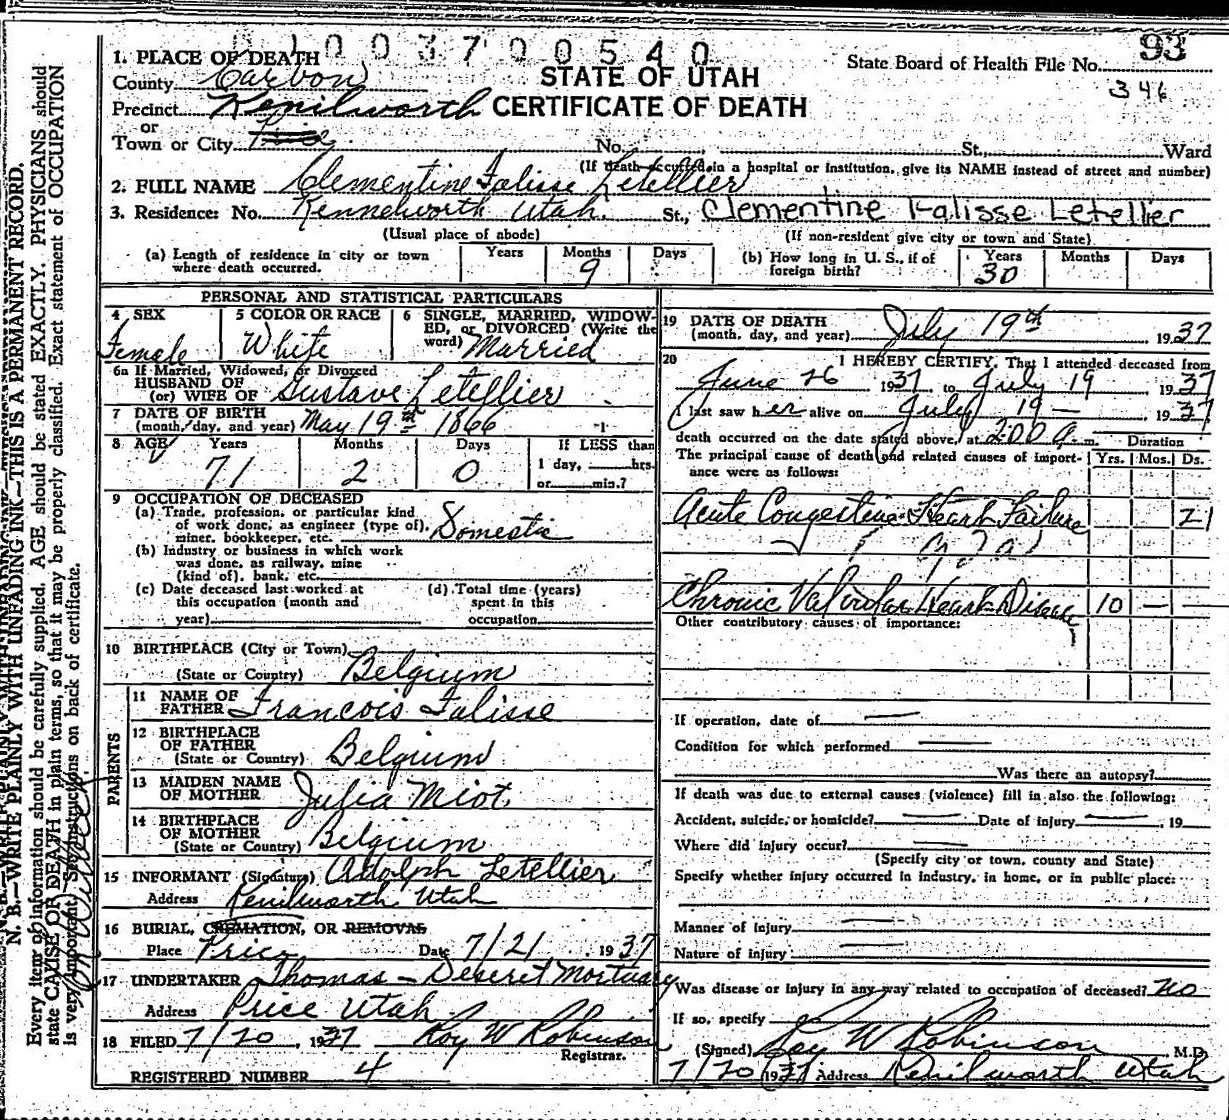 1003700540
1. PLACE OF DEATH
County Carbon
STATE OF UTAH
State Board of Health File No. 93
346
Precinct Kenilworth
CERTIFICATE OF DEATH
or
Town or City Price No. St., Ward
(If death occurred in a hospital or institution, give its NAME instead of street and number)
2. FULL NAME Clementine Falisse Letellier
3. Residence: No. Kennelworth Utah. St., Clementine Falisse Letellier
(Usual place of abode) (If non-resident give city or town and State)
(a) Length of residence in city or town where death occurred. Years Months 9 Days (b) How long in U. S., if of foreign birth? Years 30 Months Days
PERSONAL AND STATISTICAL PARTICULARS
4 SEX Female
5 COLOR OR RACE White
6 SINGLE, MARRIED, WIDOWED, or DIVORCED (Write the word) Married
6a If Married, Widowed, or Divorced
HUSBAND OF
(or) WIFE OF Gustave Letellier
7 DATE OF BIRTH
(month, day, and year) May 19th 1866
8 AGE Years 71 Months 2 Days 0 If LESS than
1 day, hrs.
or min.?
9 OCCUPATION OF DECEASED
(a) Trade, profession, or particular kind
of work done, as engineer (type of),
miner, bookkeeper, etc. Domestic
(b) Industry or business in which work
was done, as railway, mine
(kind of), bank, etc.
(c) Date deceased last worked at
this occupation (month and
year)
(d) Total time (years)
spent in this
occupation
10 BIRTHPLACE (City or Town)
(State or Country) Belgium
PARENTS
11 NAME OF
FATHER Francois Falisse
12 BIRTHPLACE
OF FATHER
(State or Country) Belgium
13 MAIDEN NAME
OF MOTHER Julia Miot
14 BIRTHPLACE
OF MOTHER
(State or Country) Belgium
15 INFORMANT (Signature) Adolph Letellier
Address Kenilworth Utah
16 BURIAL, CREMATION, OR REMOVAL
Place Price Date 7/21 1937
17 UNDERTAKER Thomas - Deseret Mortuary
Address Price Utah
18 FILED 7/20, 1937 Roy W Robinson
Registrar.
REGISTERED NUMBER 4
19 DATE OF DEATH
(month, day, and year) July 19th, 1937
20 I HEREBY CERTIFY, That I attended deceased from
June 26 1937 to July 19 1937
I last saw her alive on July 19 - 1937
death occurred on the date stated above, at 2:00 a.m. Duration
The principal cause of death and related causes of importance were as follows: Yrs. Mos. Ds.
Acute Congestive Heart Failure 21
Chronic Valvular Heart Disease 10 — —
Other contributory causes of importance:
If operation, date of —
Condition for which performed —
Was there an autopsy?
If death was due to external causes (violence) fill in also the following:
Accident, suicide, or homicide? — Date of injury —, 19
Where did injury occur? —
(Specify city or town, county and State)
Specify whether injury occurred in industry, in home, or in public place:
Manner of injury —
Nature of injury —
Was disease or injury in any way related to occupation of deceased? no
If so, specify
(Signed) Roy W Robinson M.D.
7/20 1937 Address Kenilworth Utah
N. B.—WRITE PLAINLY WITH UNFADING INK—THIS IS A PERMANENT RECORD.
Every item of information should be carefully supplied. AGE should be stated EXACTLY. PHYSICIANS should
state CAUSE OF DEATH in plain terms, so that it may be properly classified. Exact statement of OCCUPATION
is very important. See instructions on back of certificate.